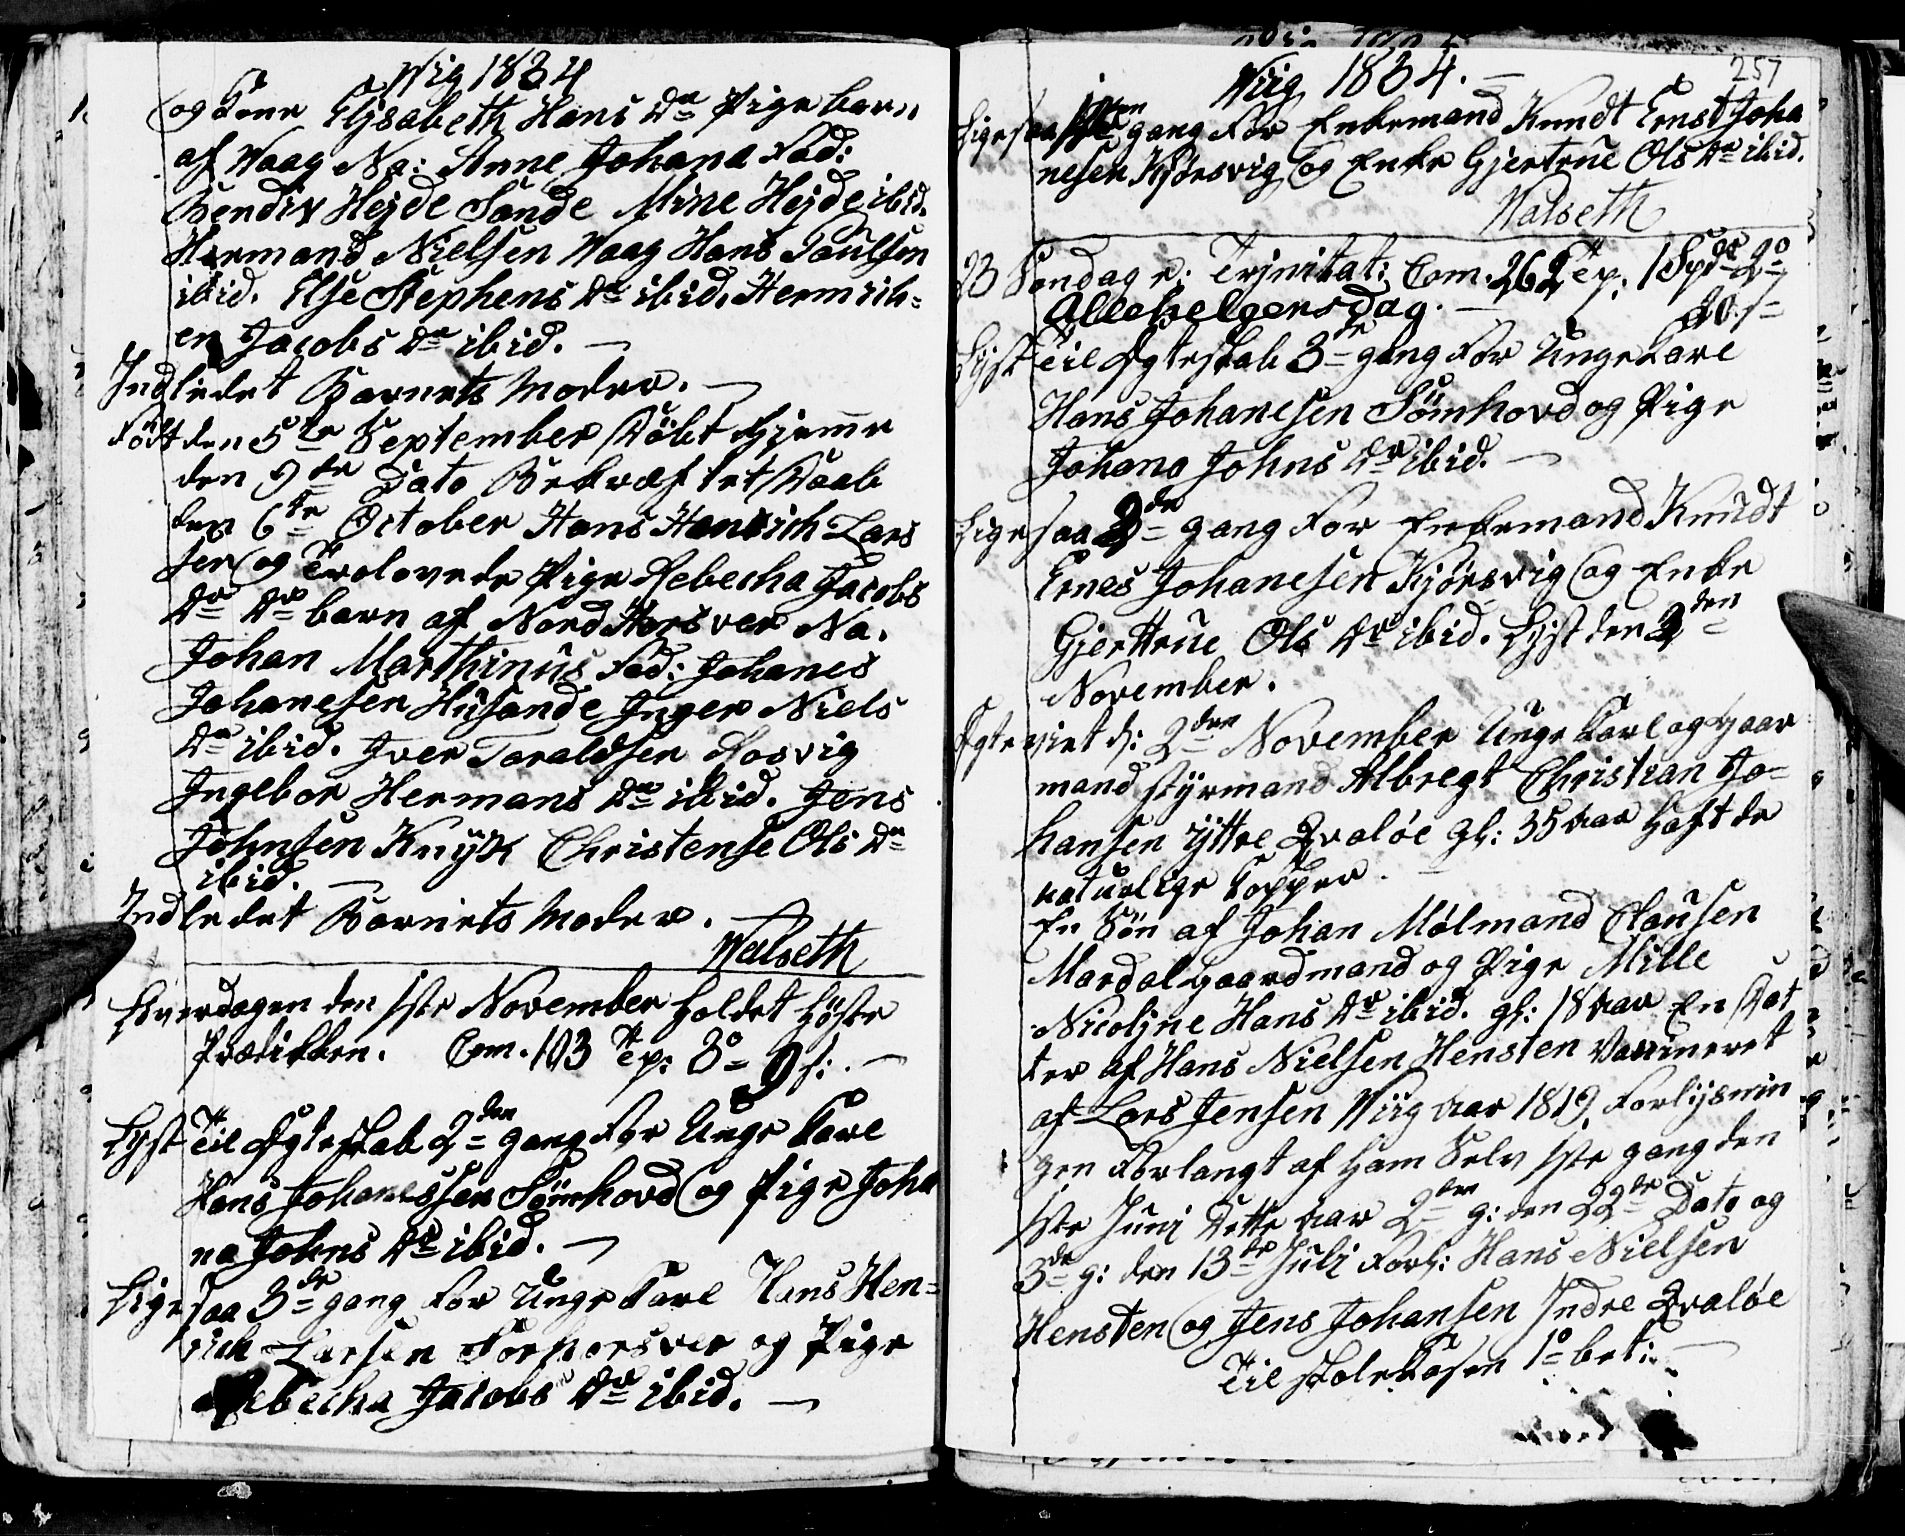 Wiig 1834
og Kone Elisabeth Hans Dr Pigebarn
af Waag Na: Anne Johana Fad:
Bendix Hejde Sande Mine Hejde ibid.
Hermand Nielsen Waag Hans Poulsen
ibid. Else Stephens Dr ibid. Henrich-
en Jacobs Dr ibid. —
Indledet Barnets Moder. —
Født den 5te September Døbt hjemme
den 9de Dato Bekræftet Daab
den 6te October Hans Henrich Lars
sen og Trolovede Pige Rebecha Jacobs
Dr Dr barn af Nord Horsver Na.
Johan Marthinus Fad: Johanes
Johanesen Husande Inger Niels
Dr ibid. Iver Taraldsen Rosvig
Ingebor Hermans Dr ibid. Jens
Johnsen Christense Ols Dr
ibid. —
Indledet Barnets Moder. —
Walseth
Løverdagen den 1ste November holdet Høste
Prædikken. Com. 103 Tp: 3 9 s: . —
Lyst Til Ægteskab 2den gang for Unge Karl
Hans Johanessen Sømhovd og Pige Joha
na Johns Dr ibid. —
Ligesaa 3de gang for Unge Karl Hans Hen-
rich Larsen og Pige
Rebecha Jacobs Dr ibid. —
257
Wiig 1834. —
Ligesaa gang for Enkemand Knudt Ernst Joha
nesen Kjørsvig og Enke Gjertrue Ols Dr ibid.
Walseth
23 Søndag e: Trinitat: Com. 262 Tp: 1 Spd 2
Allehelgensdag. — 20 s
Lyst Til Ægteskab 3de gang for Unge Karl
Hans Johanesen Sømhovd og Pige
Johana Johns Dr ibid. —
Ligesaa 3de gang for Enkemand Knudt
Ernes Johanesen Kjørsvig og Enke
Gjerttrue Ols Dr ibid. Lyst den 2den
November.
Ægteviet d: 2den November Unge Karl og Gaar
mand styrmand Albregt Christian Jo-
hansen yttre Qvaløe gl: 35 aar haft de
naturlige Kopper. —
En Søn af Johan Mølmand Clausen
Mardal gaardmand og Pige Mille
Nicoline Hans Dr ibid. gl: 18 aar En Dat
ter af Hans Nielsen Hensten Vaccineret
af Lars Jensen Wiig aar 1819. Forlysnin
gen Forlangt af ham Selv 1ste gang den
1ste Juni Dette aar 2den g: den 22de Dato og
3de g: den 13de Juli Forl: Hans Nielsen
Hensten og Jens Johansen Indre Qvaløe
Til Skolekasen 1 bet: —